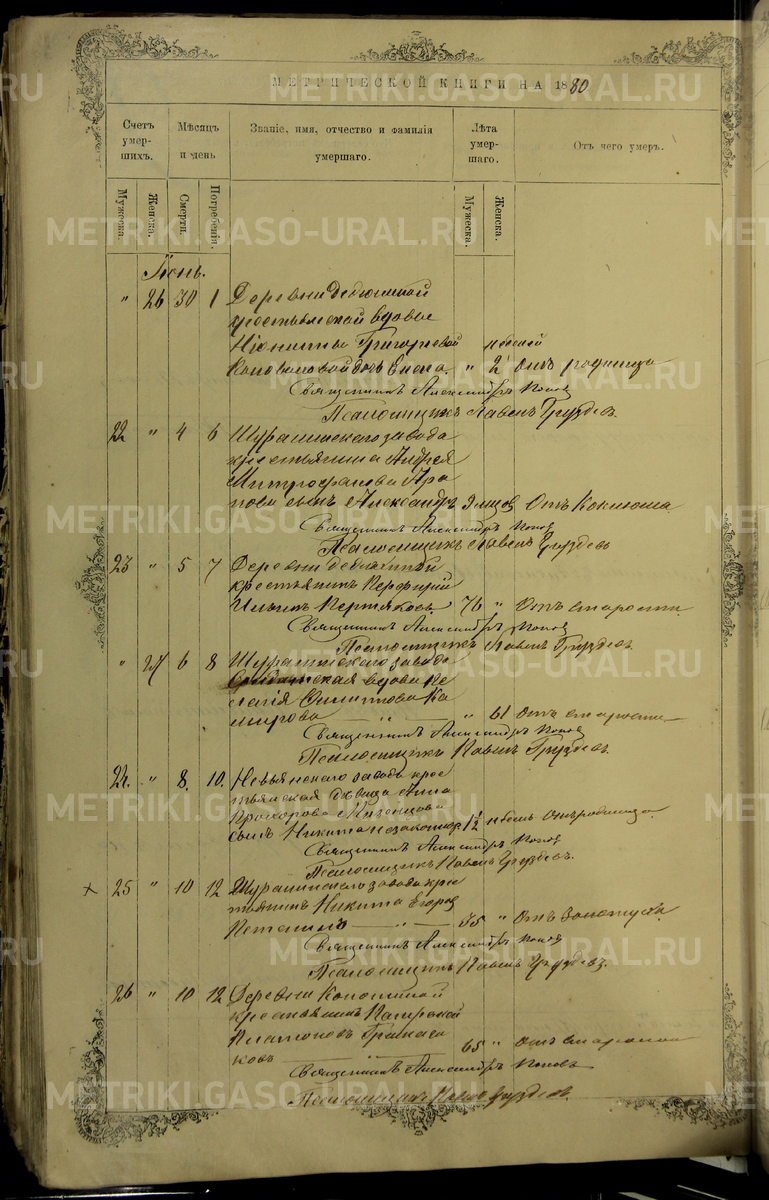 МЕТРИЧЕСКОЙ КНИГИ НА 1880
Счетъ умер- шихъ.
Мѣсяцъ и день
Званіе, имя, отчество и фамилія умершаго.
Лѣта умер- шаго.
Отъ чего умеръ.
Мужеска.
Женска.
Смерти.
Погребенія.
Мужеска.
Женска.
METRIKI.GASO-URAL.RU
Іюнь.
" 26 30 1 Деревни
крестьянской вдовы
Григорьевой недѣлей
дочь Елена. " 2 Отъ родимца
Священникъ Александръ Поповъ
Псаломщикъ Павелъ Груздевъ.
22 " 4 6 Шуралинскаго завода
крестьянина Андрея
Митрофанова Ара
пова сынъ Александръ 9 мѣсяцев Отъ Коклюша
Священникъ Александръ Поповъ
Псаломщикъ Павелъ Груздевъ
23 " 5 7 Деревни
крестьянинъ Порфирій
Ильинъ 76 " Отъ старости.
Священникъ Александръ Поповъ
Псаломщикъ Павелъ Груздевъ.
" 27 6 8 Шуралинскаго завода
вдова Пе
лагія Филиппова Ка
" 61 Отъ старости
Священникъ Александръ Поповъ
Псаломщикъ Павелъ Груздевъ.
24. " 8. 10. Невьянскаго завода крес
тьянская дѣвица Анна
Прохорова
сынъ Никита незаконнор. 1½ недѣль Отъ родимца.
Священникъ Александръ Поповъ
Псаломщикъ Павелъ Груздевъ.
× 25 " 10 12 Шуралинскаго завода крес
тьянинъ Никита Егоров
35 " Отъ Золотухи.
Священникъ Александръ Поповъ
Псаломщикъ Павелъ Груздевъ.
26 " 10 12 Деревни
крестьянинъ
Платоновъ
ковъ 65 " Отъ старости
Священникъ Александръ Поповъ
Псаломщикъ Павелъ Груздевъ.